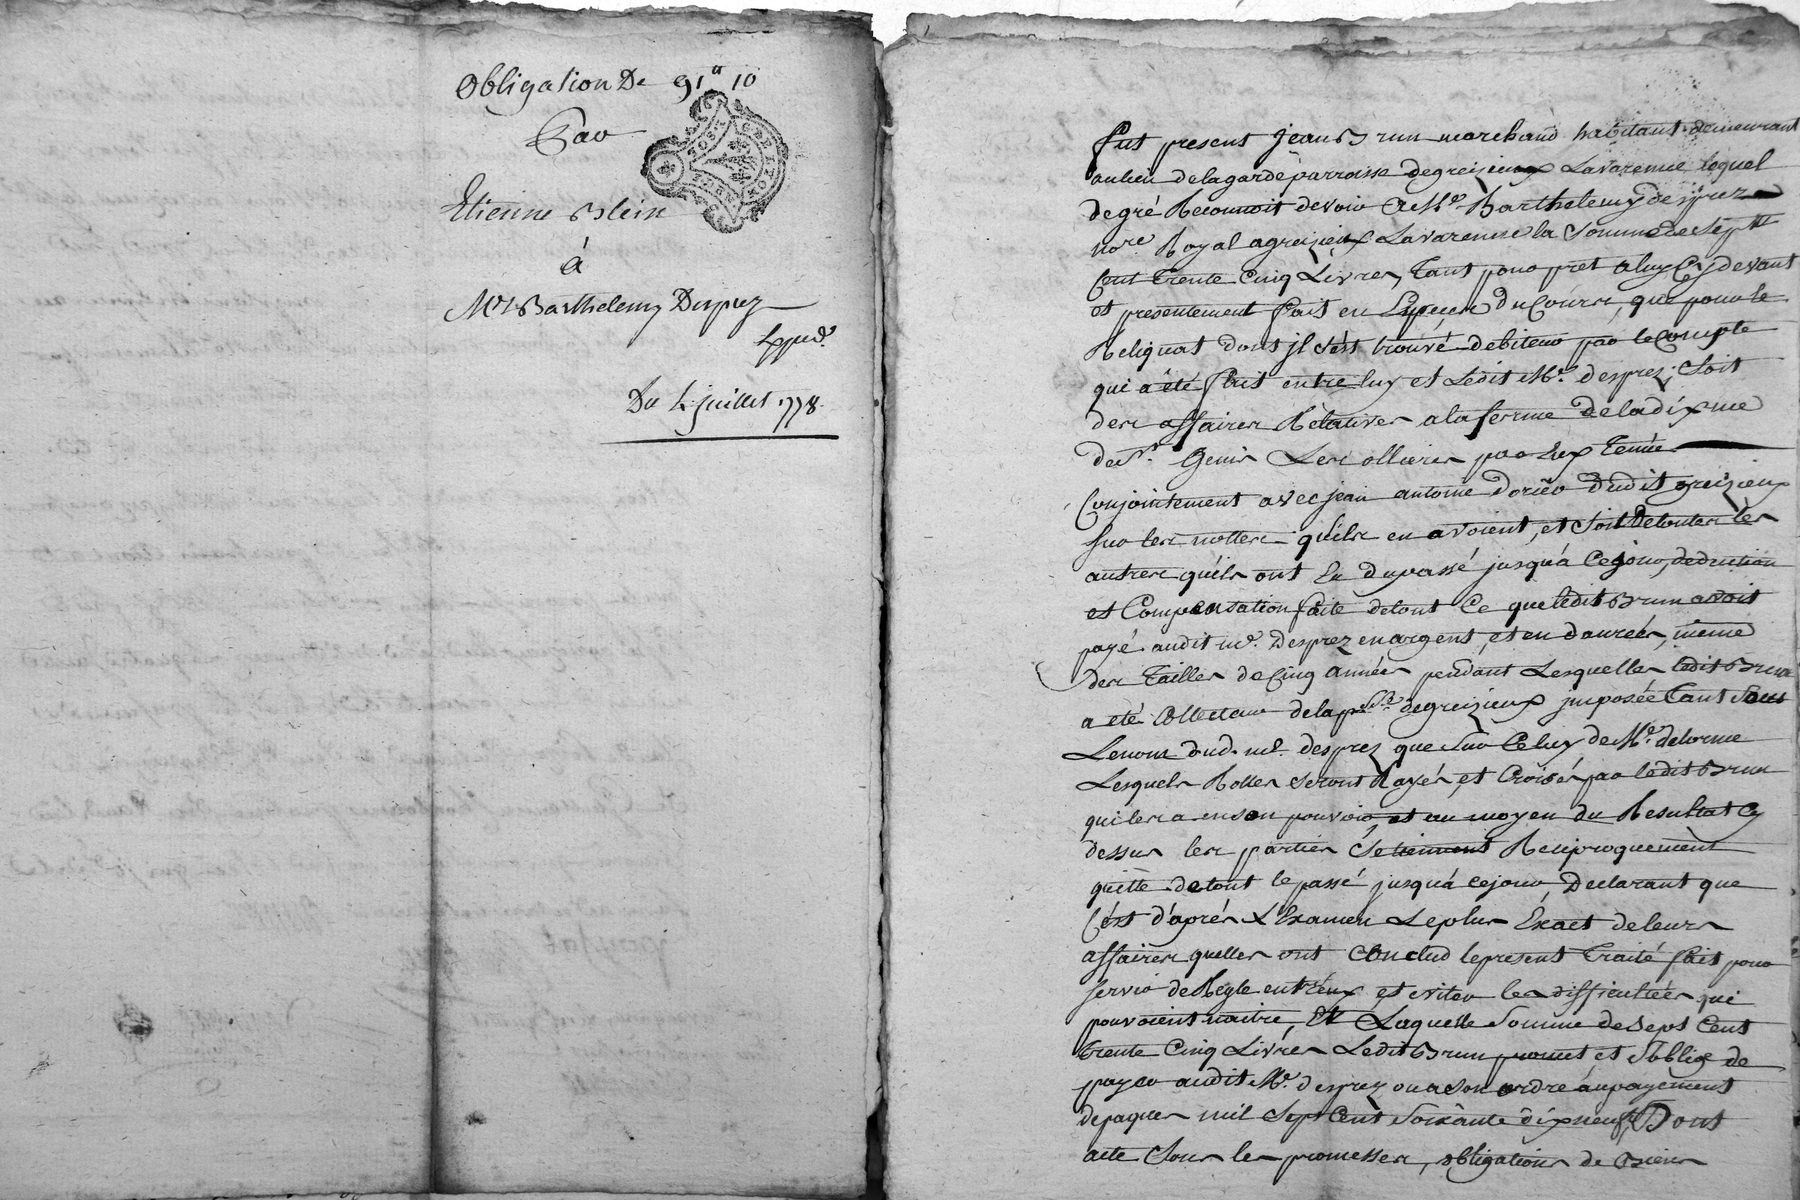 Obligation De 91ll 10
Par
Etienne Blein
à
Me Barthelemy Desprez
Exped.
Du 4 juillet 1778.
Fut present jean Brun marchand habitant demeurant
au lieu de la garde parroisse de greizieux Lavarenne lequel
de gré Reconnoit devoir a Me. Barthelemy desprez
nore. Royal a greizieux Lavarenne la Somme de Sept
Cent trente Cinq Livres, tant pour pret a luy Cy devant
et presentement fait en Especes du Cours, que pour le
Reliquat dont jl s'est trouvé debiteur par le Compte
qui a été fait entre luy et Ledit Me. desprez, Soit
des affaires Relatives a la ferme de la dixme
de St. Genis Les ollieres par Eux tenüe
Conjointement avec jean antoine dorier dudit greizieux
sur les nottes qu'ils en avoient, et Soit De toutes les
autres qu'ils ont Eu du passé jusqu'a Ce jour, deduction
et Compensation faite de tout Ce que ledit Brun avoit
payé audit Me. Desprez en argent, et en danrées, même
des Tailles de Cinq années pendant Lesquelles ledit Brun
a eté Collecteur de la psse. de greizieux jmposée tant Sous
Le nom dud. Me. desprez que Sur Celuy de Me. delorme
Lesquels Rolles Seront Rayés, et Croisés par ledit Brun
qui les a en son pouvoir, et au moyen du Resultat Cy
dessus les parties Se tiennent Reciproquement
quitte de tout le passé jusqu'a ce jour, Declarant que
C'est d'aprés L'Examen Le plus Exact de leurs
affaires quelles ont Conclud le present Traité fait pour
servir de Regle entr'eux et eviter les difficultées qui
pouvoient naitre, Et Laquelle Somme de Sept Cent
trente Cinq Livres Ledit Brun promet et S'oblige de
payer audit Me. desprez ou a Son ordre au payement
de paques mil Sept Cent Soixante dix neuf, Dont
acte Sous les promesses, obligations de Biens